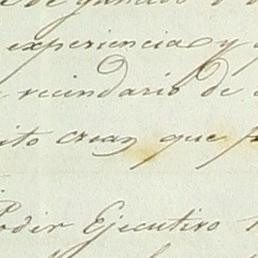 de ganado
experiencia y
vecindario de
ito crean que
Poder Ejecutivo